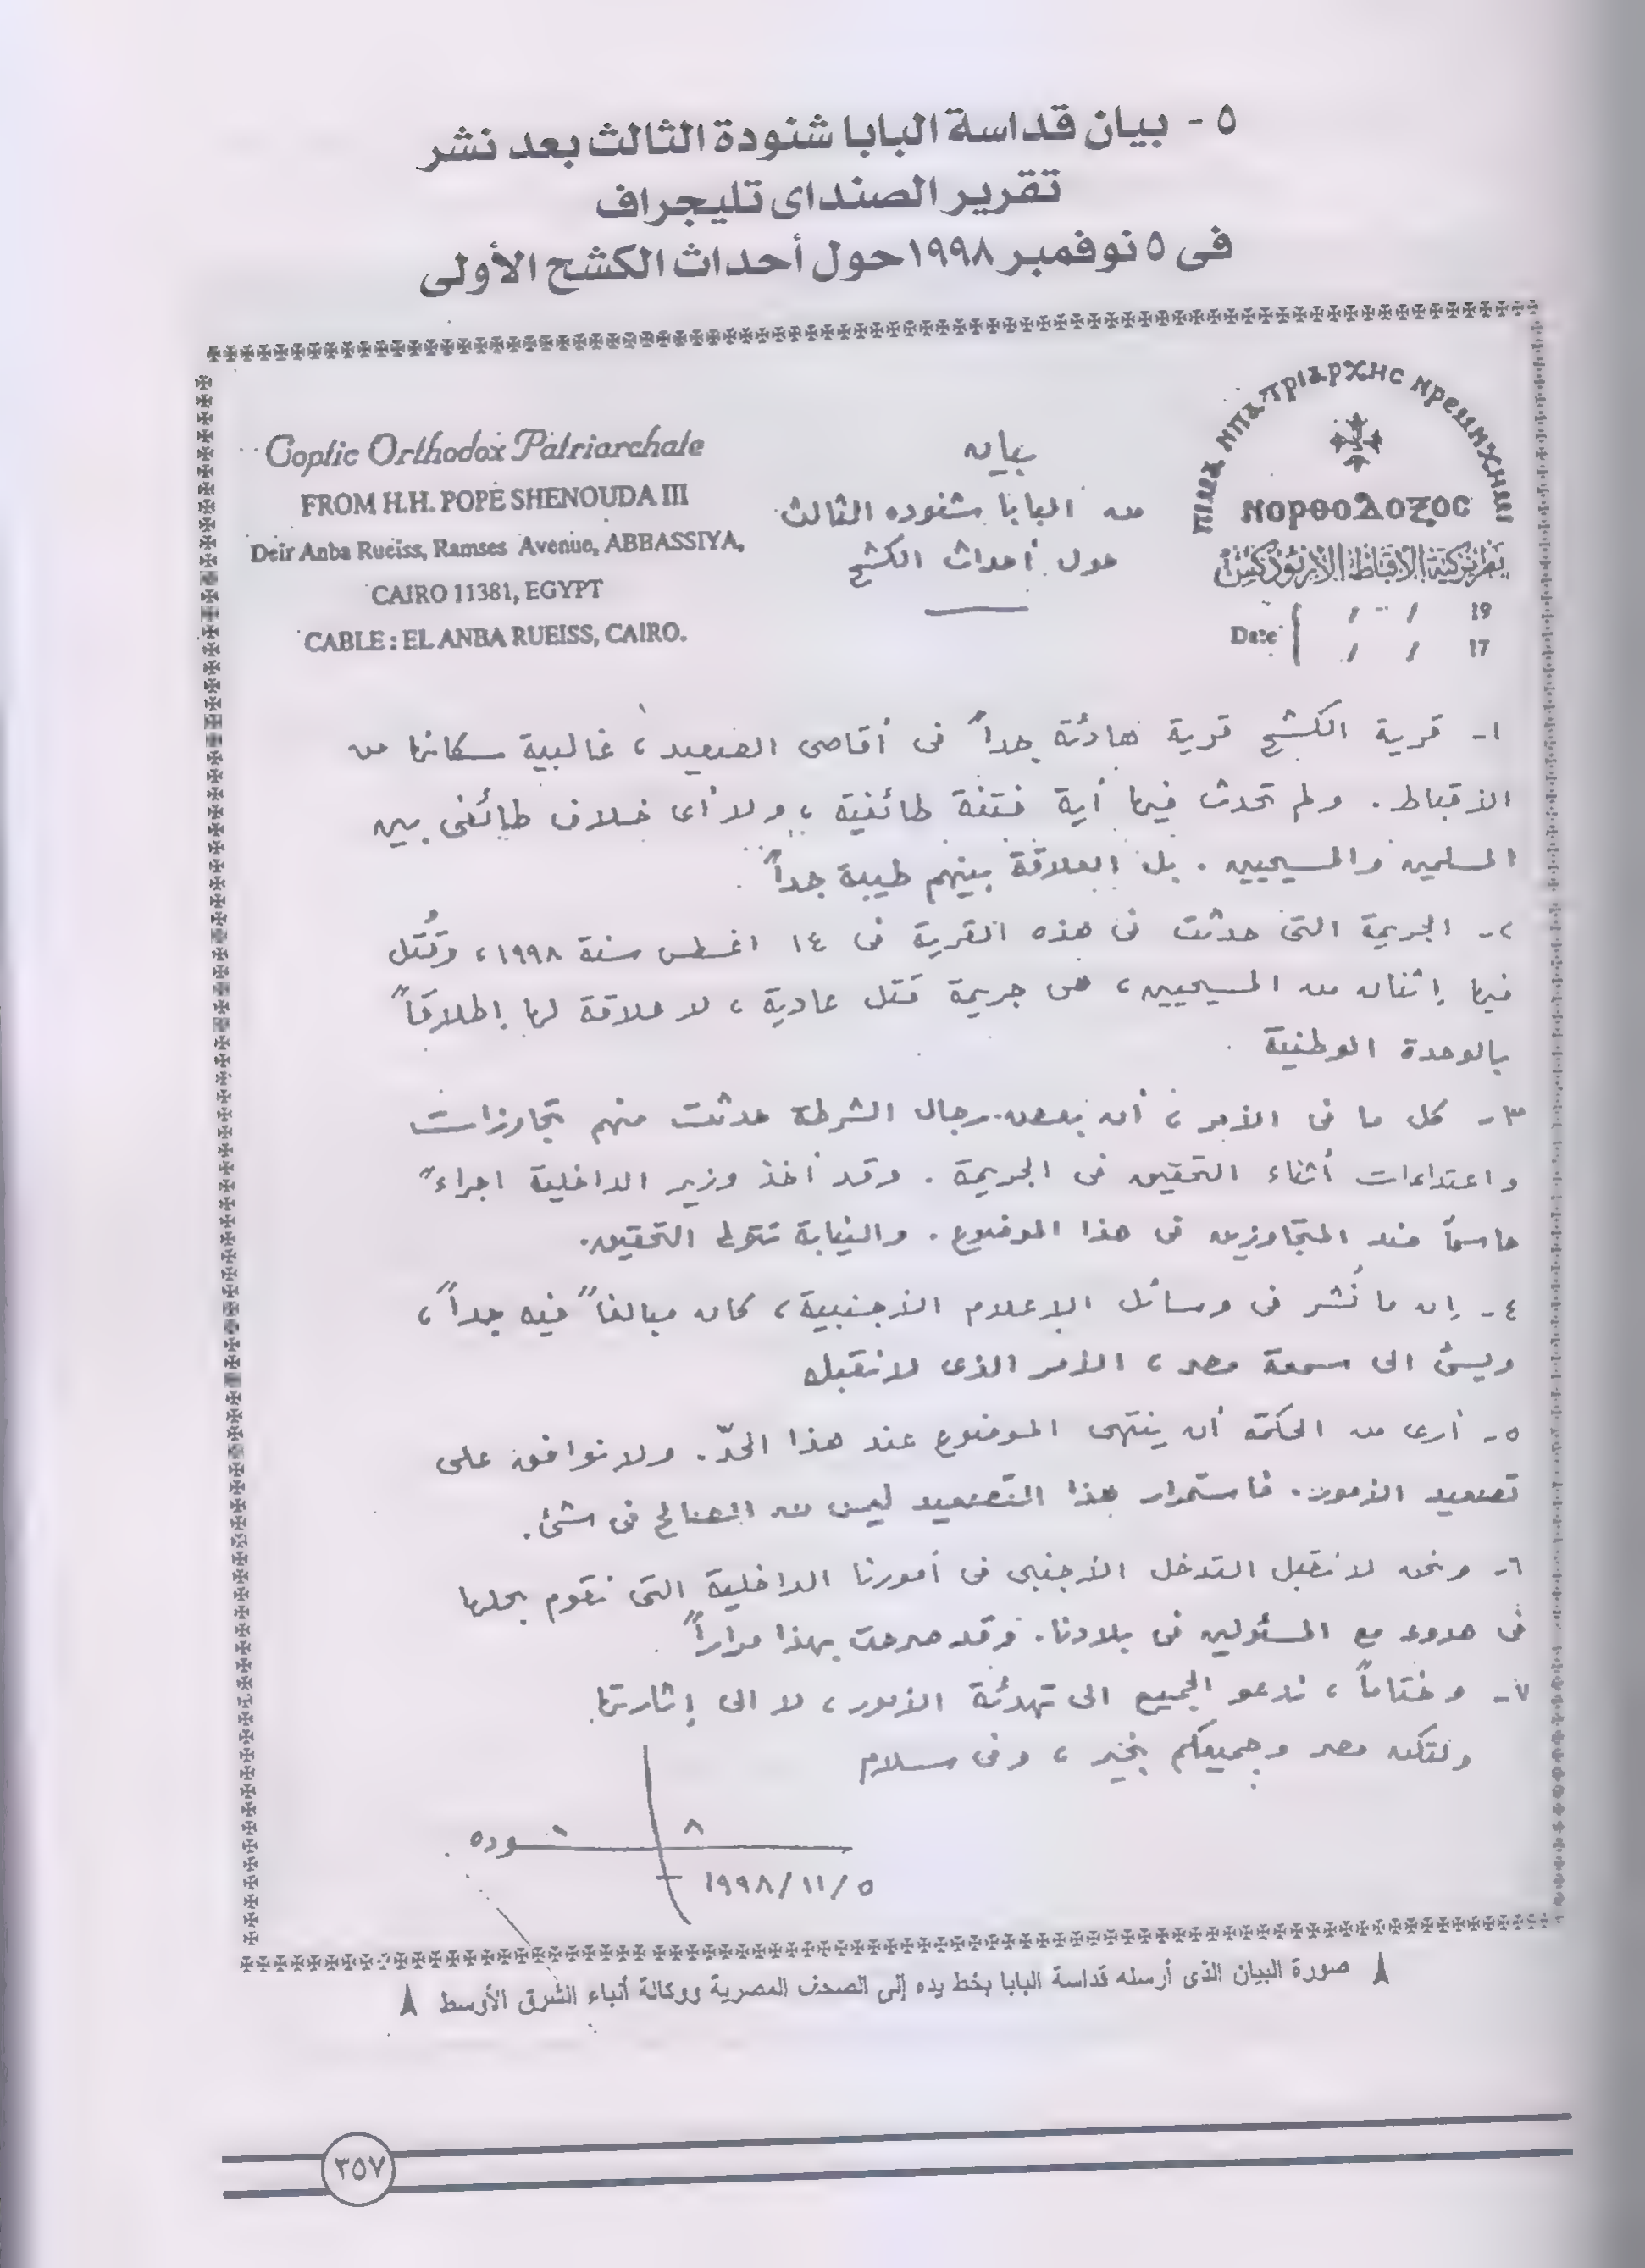 ٥ - بيان قداسة البابا شنودة الثالث بعد نشر
تقرير الصنداى تليجراف
فى ٥ نوفمبر ١٩٩٨ حول أحداث الكشح الأولى
Coptic Orthodox Patriarchate
FROM H.H. POPE SHENOUDA III
Deir Anba Rueiss, Ramses Avenue, ABBASSIYA,
CAIRO 11381, EGYPT
CABLE : EL ANBA RUEISS, CAIRO.
بيان
من البابا شنوده الثالث
حول أحداث الكشح
ⲛⲟⲣⲑⲟⲇⲟⲝⲟⲥ
بطريركية الأقباط الأرثوذكس
Date / / 19
/ / 17
١- قرية الكشح قرية هادئة جداً فى أقاصى الصعيد ، غالبية سكانها من
الأقباط . ولم تحدث فيها أية فتنة طائفية ، ولا أى خلاف طائفى بين
المسلمين والمسيحيين . بل العلاقة بينهم طيبة جداً .
٢- الجريمة التى حدثت فى هذه القرية فى ١٤ اغسطس سنة ١٩٩٨ ، وقُتل
فيها إثنان من المسيحيين ، هى جريمة قتل عادية ، لا علاقة لها إطلاقاً
بالوحدة الوطنية .
٣- كل ما فى الأمر ، أن بعض رجال الشرطة حدثت منهم تجاوزات
واعتداءات أثناء التحقيق فى الجريمة . وقد أخذ وزير الداخلية اجراءً
حاسماً ضد المتجاوزين فى هذا الموضوع . والنيابة تتولى التحقيق .
٤- إن ما نُشر فى وسائل الإعلام الأجنبية ، كان مبالغاً فيه جداً ،
ويسئ الى سمعة مصر ، الأمر الذى لا نقبله
٥- أرى من الحكمة أن ينتهى الموضوع عند هذا الحدّ . ولا نوافق على
تصعيد الأمور . فاستمرار هذا التصعيد ليس من الصالح فى شئ .
٦- ونحن لا نقبل التدخل الأجنبى فى أمورنا الداخلية التى نقوم بحلها
فى هدوء مع المسئولين فى بلادنا . وقد صرحت بهذا مراراً
٧- وختاماً ، ندعو الجميع الى تهدئة الأمور ، لا الى إثارتها .
ولتكن مصر وجميعكم بخير ، وفى سلام
شنوده
١٩٩٨/١١/٥
صورة البيان الذى أرسله قداسة البابا بخط يده إلى الصحف المصرية ووكالة أنباء الشرق الأوسط
٣٥٧